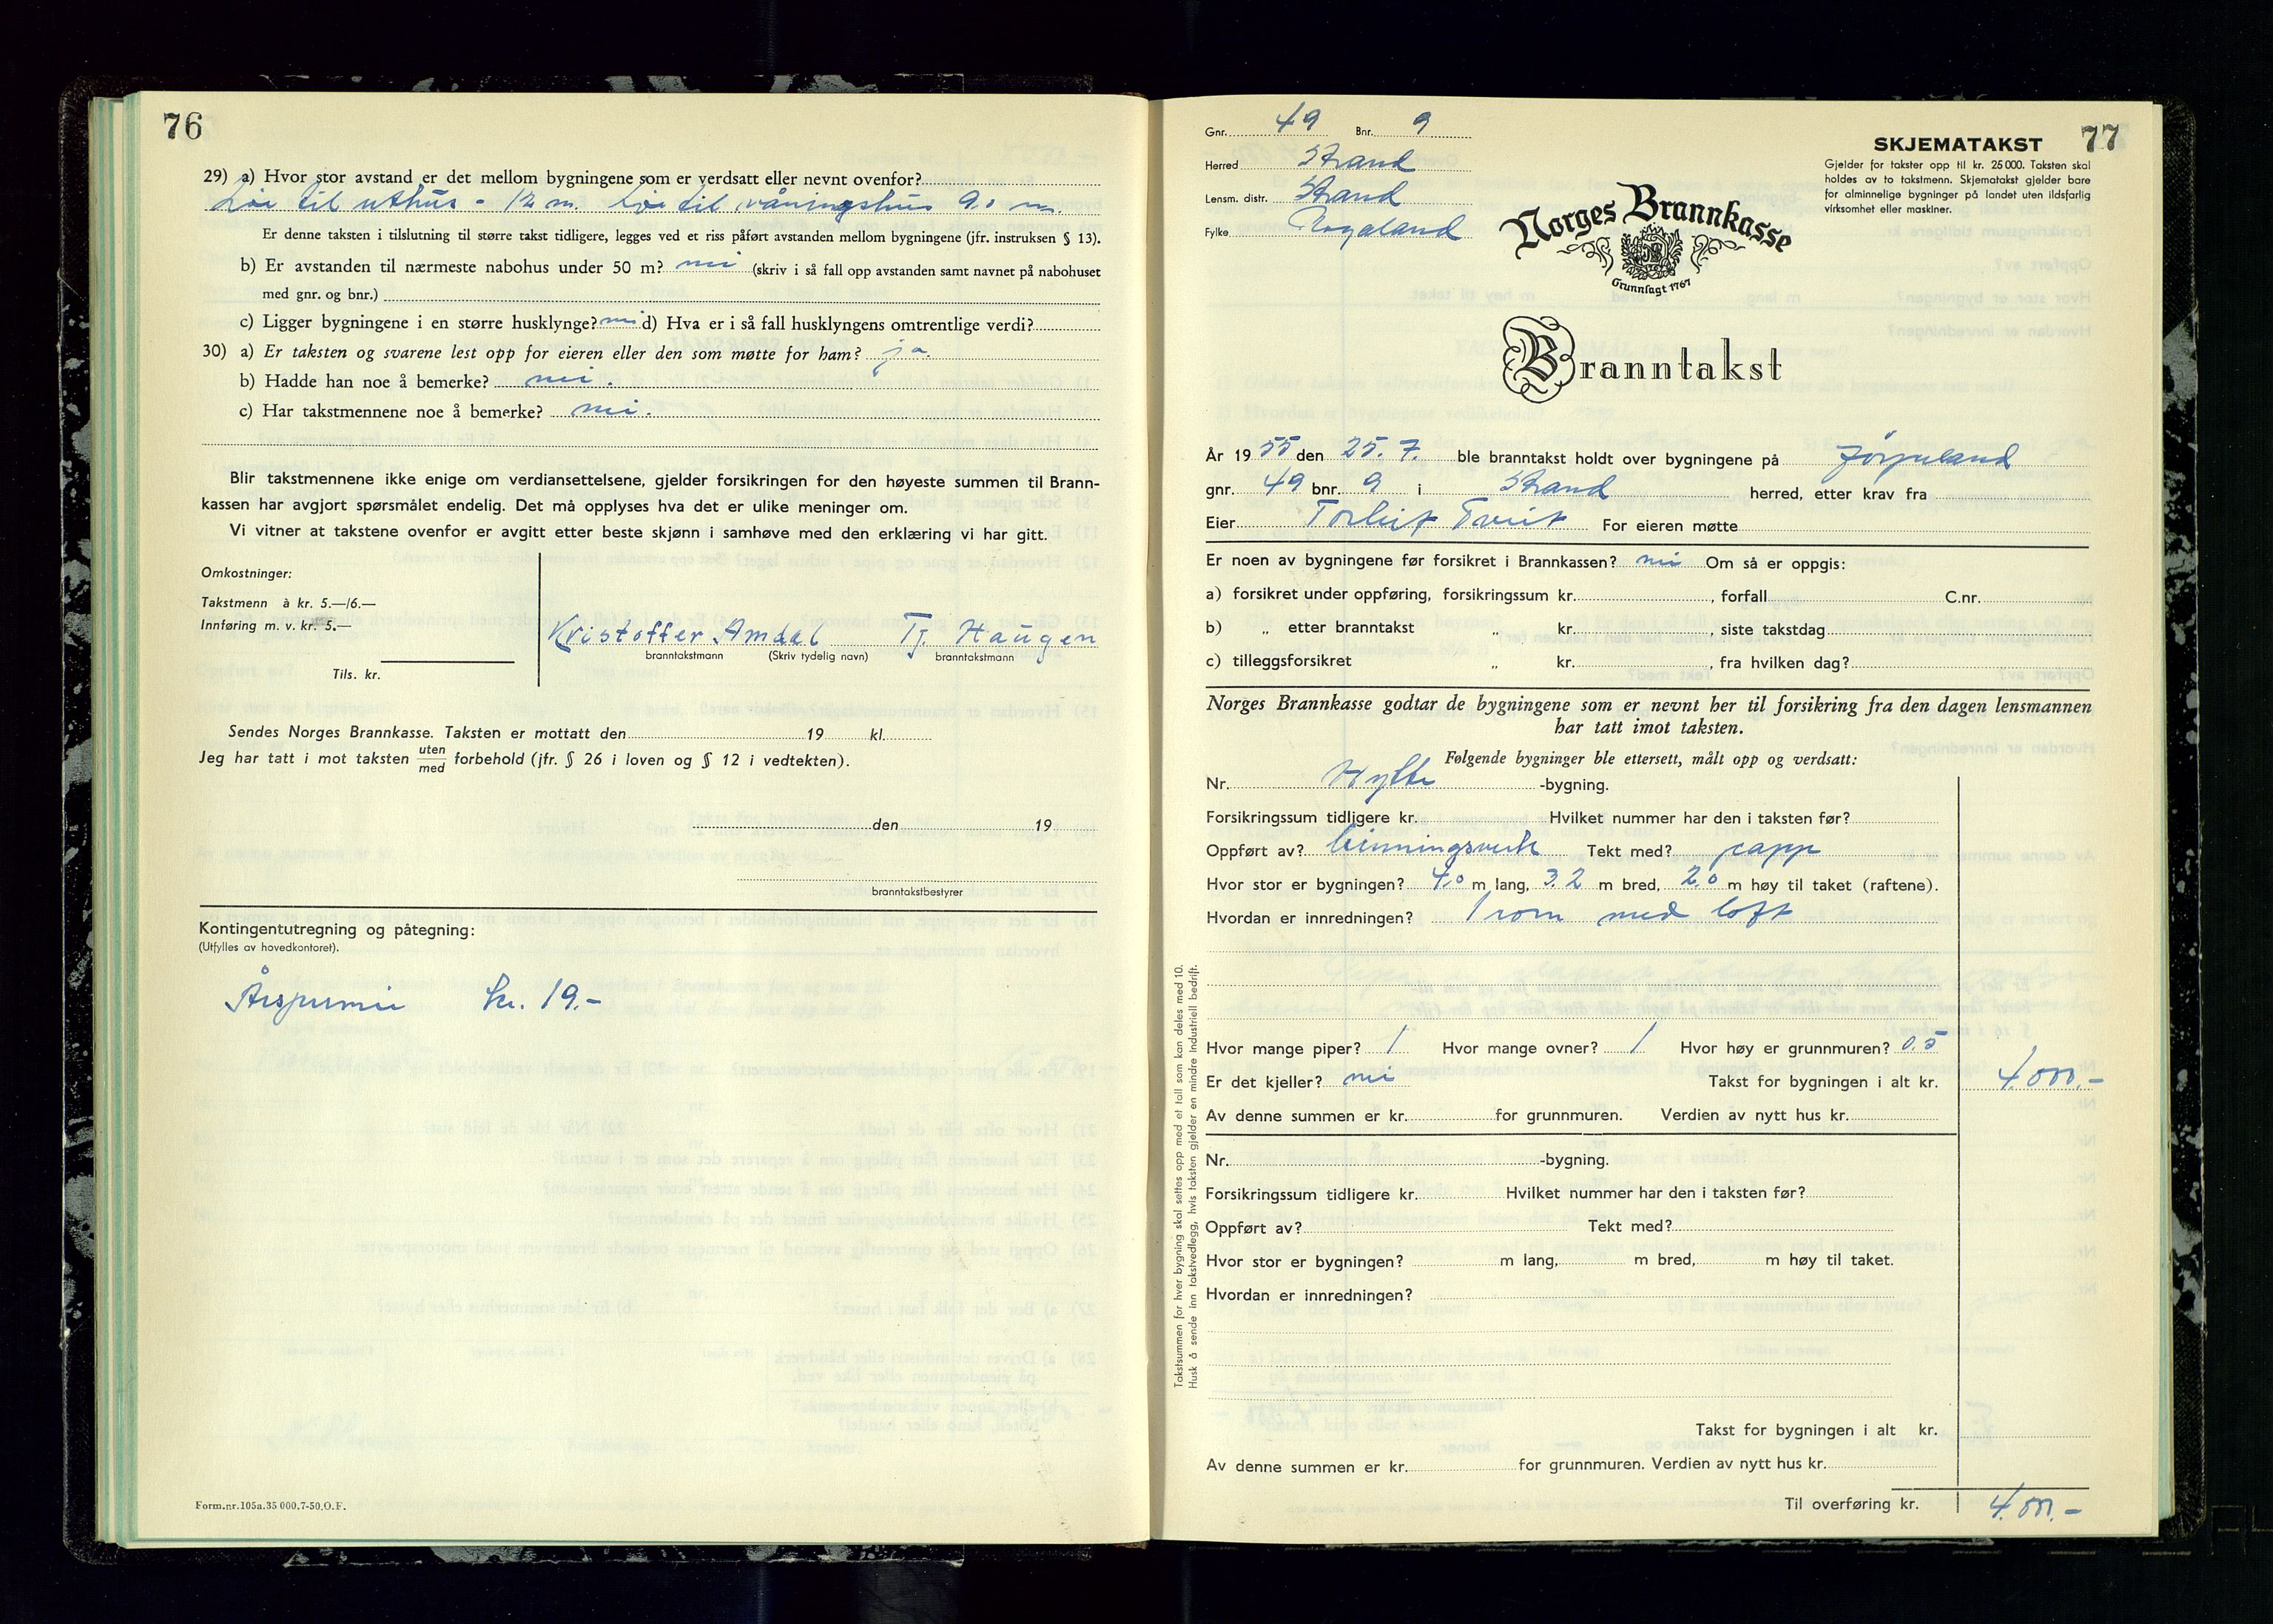 76
29) a) Hvor stor avstand er det mellom bygningene som er verdsatt eller nevnt ovenfor?
Løe til uthus - 12 m. løe til våningshus 9.0 m.
Er denne taksten i tilslutning til større takst tidligere, legges ved et riss påført avstanden mellom bygningene (jfr. instruksen § 13).
b) Er avstanden til nærmeste nabohus under 50 m? nei (skriv i så fall opp avstanden samt navnet på nabohuset
med gnr. og bnr.)
c) Ligger bygningene i en større husklynge? nei d) Hva er i så fall husklyngens omtrentlige verdi?
30) a) Er taksten og svarene lest opp for eieren eller den som møtte for ham? ja.
b) Hadde han noe å bemerke? nei.
c) Har takstmennene noe å bemerke? nei.
Blir takstmennene ikke enige om verdiansettelsene, gjelder forsikringen for den høyeste summen til Brann-
kassen har avgjort spørsmålet endelig. Det må opplyses hva det er ulike meninger om.
Vi vitner at takstene ovenfor er avgitt etter beste skjønn i samhøve med den erklæring vi har gitt.
Omkostninger:
Takstmenn à kr. 5.—/6.—
Innføring m. v. kr. 5.—
Tils. kr.
Kristoffer Amdal Tj. Haugen
branntakstmann (Skriv tydelig navn) branntakstmann
Sendes Norges Brannkasse. Taksten er mottatt den 19 kl.
Jeg har tatt i mot taksten uten/med forbehold (jfr. § 26 i loven og § 12 i vedtekten).
den 19
branntakstbestyrer
Kontingentutregning og påtegning:
(Utfylles av hovedkontoret).
Årspremie kr. 19.-
Form.nr.105a.35 000.7-50.O.F.
77
Gnr. 49 Bnr. 9
Herred Strand
Lensm. distr. Strand
Fylke Rogaland
SKJEMATAKST
Gjelder for takster opp til kr. 25 000. Taksten skal
holdes av to takstmenn. Skjematakst gjelder bare
for alminnelige bygninger på landet uten ildsfarlig
virksomhet eller maskiner.
Norges Brannkasse
Grunnlagt 1767
Branntakst
År 1955 den 25. 7. ble branntakst holdt over bygningene på Jørpeland
gnr. 49 bnr. 9 i Strand herred, etter krav fra
Eier Torleif Tveit For eieren møtte
Er noen av bygningene før forsikret i Brannkassen? nei Om så er oppgis:
a) forsikret under oppføring, forsikringssum kr. , forfall C.nr.
b) „ etter branntakst „ kr. , siste takstdag
c) tilleggsforsikret „ kr. , fra hvilken dag?
Norges Brannkasse godtar de bygningene som er nevnt her til forsikring fra den dagen lensmannen
har tatt imot taksten.
Følgende bygninger ble ettersett, målt opp og verdsatt:
Nr. Hytte -bygning.
Forsikringssum tidligere kr. Hvilket nummer har den i taksten før?
Oppført av? binningsverk Tekt med? papp
Hvor stor er bygningen? 4.0 m lang, 3.2 m bred, 2.0 m høy til taket (raftene).
Hvordan er innredningen? 1 rom med loft
Hvor mange piper? 1 Hvor mange ovner? 1 Hvor høy er grunnmuren? 0.5
Er det kjeller? nei Takst for bygningen i alt kr. 4.000.-
Av denne summen er kr. for grunnmuren. Verdien av nytt hus kr.
Nr. -bygning.
Forsikringssum tidligere kr. Hvilket nummer har den i taksten før?
Oppført av? Tekt med?
Hvor stor er bygningen? m lang, m bred, m høy til taket.
Hvordan er innredningen?
Takst for bygningen i alt kr.
Av denne summen er kr. for grunnmuren. Verdien av nytt hus kr.
Til overføring kr. 4.000.-
Takstsummen for hver bygning skal settes opp med et tall som kan deles med 10.
Husk å sende inn takstvedlegg, hvis taksten gjelder en mindre industriell bedrift.